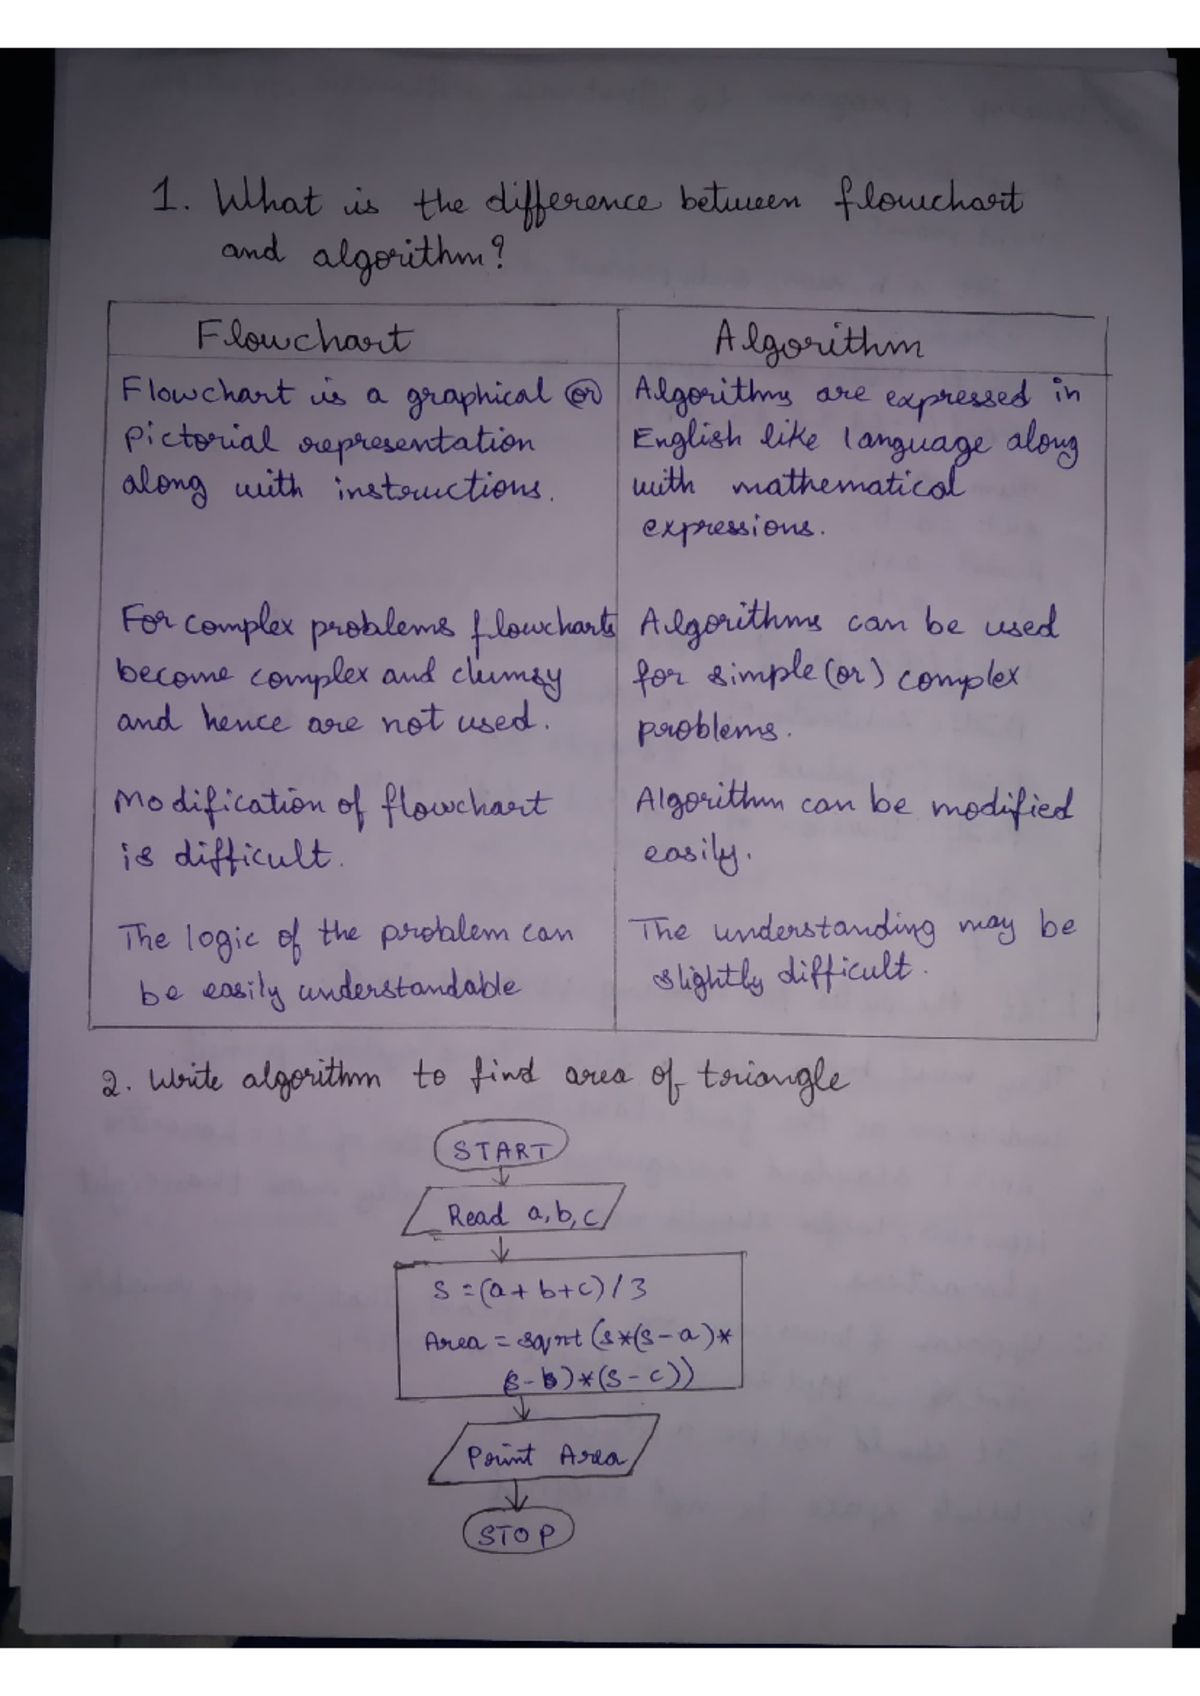 1. What is the difference between flowchart
and algorithm?
Flowchart
Flowchart is a graphical (or)
Pictorial representation
along with instructions.
For complex problems flowcharts
become complex and clumsy
and hence are not used.
Modification of flowchart
is difficult.
The logic of the problem can
be easily understandable
Algorithm
Algorithms are expressed in
English like language along
with mathematical
expressions.
Algorithms can be used
for simple (or) complex
problems.
Algorithm can be modified
easily.
The understanding may be
slightly difficult.
2. Write algorithm to find area of triangle
START
Read a,b,c
S=(a+b+c)/3
Area = sqrt (s*(s-a)*
(s-b)*(s-c))
Print Area
STOP